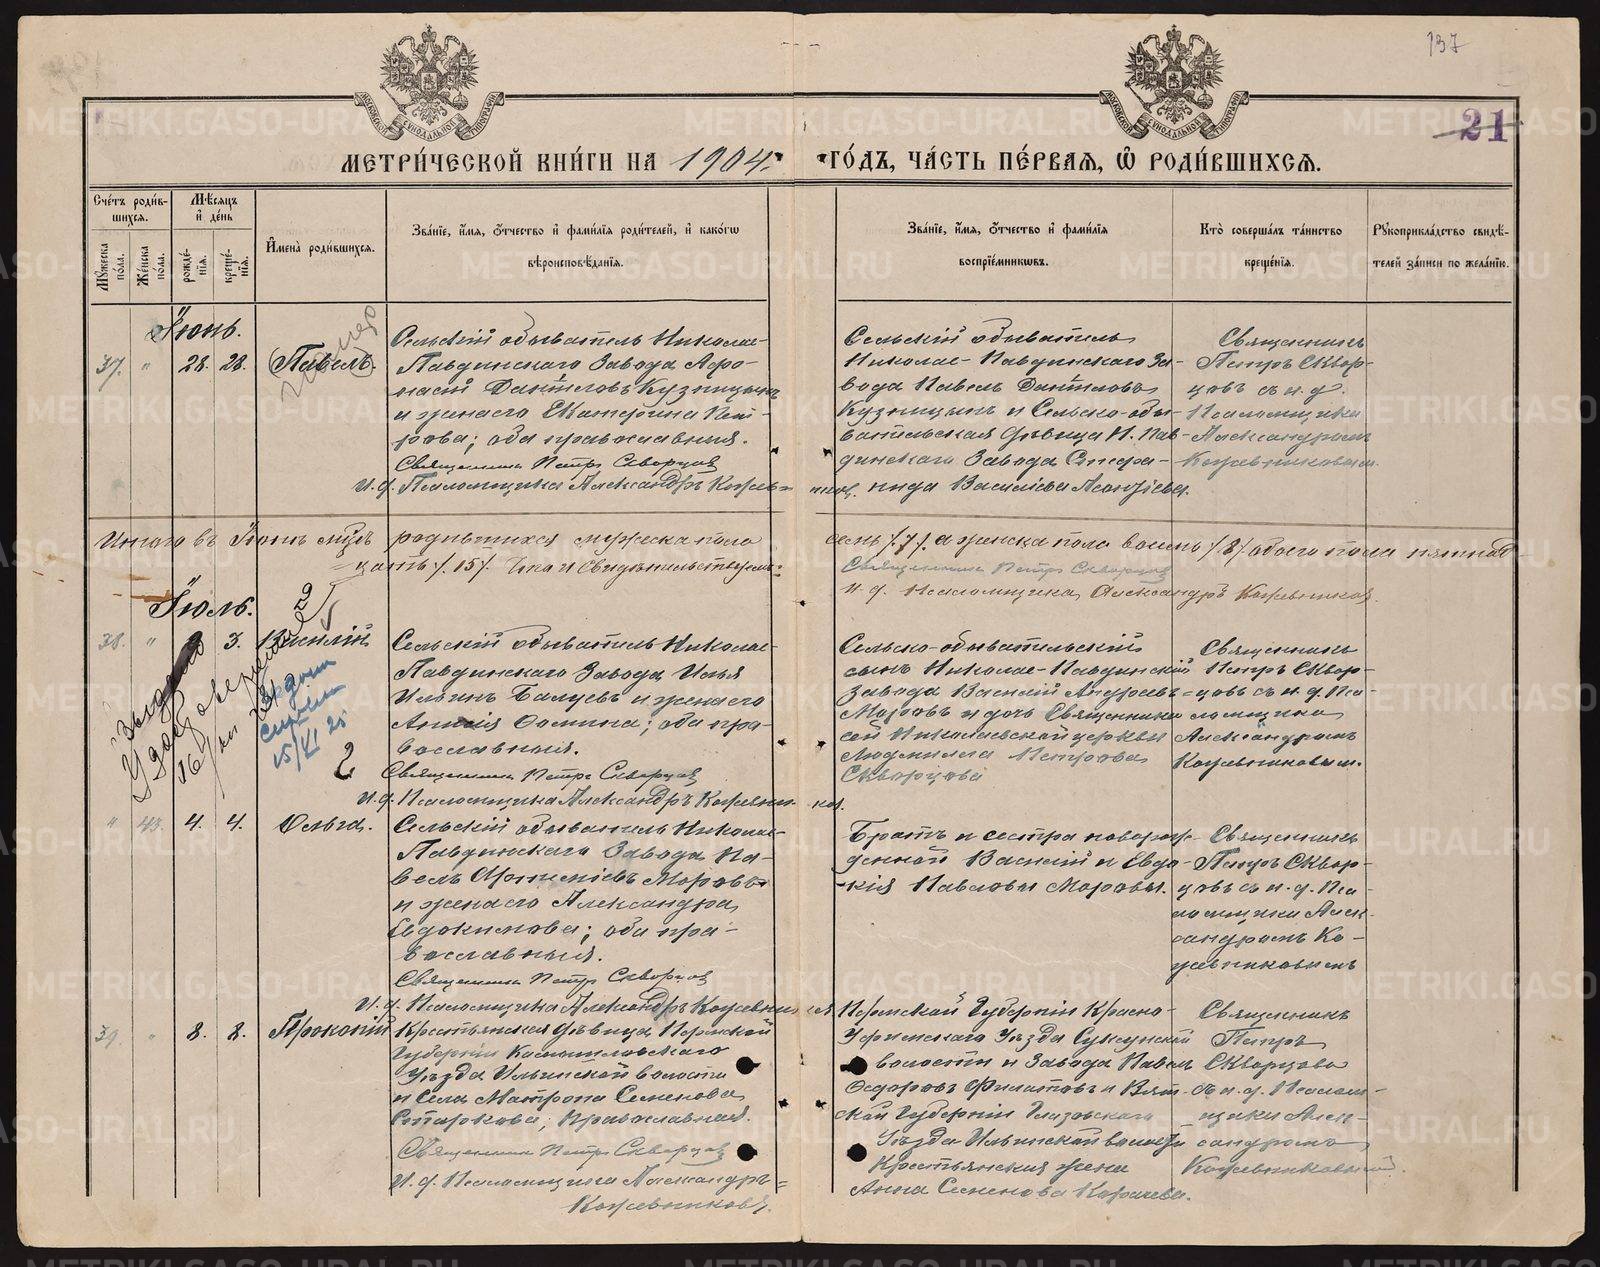 137
21
МЕТРИ́ЧЕСКОЙ КНИ́ГИ НА 1904. ГО́ДЪ, ЧА́СТЬ ПЕ́РВАЯ, Ѽ РОДИ́ВШИХСѦ.
Сче́тъ роди́в-
шихся.
Мѣ́сяцъ
и҆ де́нь
Мꙋ́жеска по́ла.
Же́нска по́ла.
рожде́-
нїѧ.
креще́-
нїѧ.
И҆мена̀ роди́вшихся.
Зва́нїе, и҆́мя, ѻ҆́тчество и҆ фами́лїя роди́телей, и҆ како́гѡ
вѣроисповѣ́данїя.
Зва́нїе, и҆́мя, ѻ҆́тчество и҆ фами́лїя
воспрїе́мникѡвъ.
Кто̀ соверша́лъ та́инство
креще́нїя.
Рꙋкоприкла́дство свидѣ́-
телей за́писи по жела́нїю.
Іюнь.
37. " 28. 28. Павелъ.
Сельскій обыватель Николае-
Павдинскаго Завода Афо-
насій Даніиловъ Кузницынъ
и жена его Екатерина Пет-
рова; оба православныя.
Священникъ Петръ Скворцовъ
И. д. Псаломщика Александръ Кожев-
никовъ.
Сельскій обыватель
Николае-Павдинскаго За-
вода Павелъ Даніиловъ
Кузницынъ и Сельско-обы-
вательская дѣвица Н. Пав-
динскаго Завода Степа-
нида Василіева Леонтіева.
Священникъ
Петръ Сквор-
цовъ съ и. д.
Псаломщика
Александромъ
Кожевниковым.
Итого въ Іюнѣ мцѣ родившихся мужеска пола семь /7/. а женска пола восемь /8/ обоего пола пятнад-
цать /15/. Что и свидѣтельствуемъ:
Священникъ Петръ Скворцовъ
и. д. Псаломщика Александръ Кожевников.
Іюль.
38. " 3. Василій
Сельскій обыватель Николае-
Павдинскаго Завода Илья
Ильинъ Балуевъ и жена его
Анисія Фомина; оба пра-
вославныя.
Священникъ Петръ Скворцовъ
И. д. Псаломщика Александръ Кожевни-
ков.
Сельско-обывательскій
сынъ Николае-Павдинскій
завода Василій Андреевъ
Моровъ и дочь Священника
сей Николаевской церкви
Людмилла Петрова
Скворцова
Священникъ
Петръ Сквор-
цовъ съ и. д. Пса-
ломщика
Александромъ
Кожевниковым.
Выдано
Удостоверение
16/
15/VI 25
2
" 4. 4. Ольга.
Сельскій обыватель Николае-
Павдинскаго Завода Па-
велъ Артеміевъ Моровъ
и жена его Александра
Евдокимова; оба пра-
вославныя.
Священникъ Петръ Скворцовъ
И. д. Псаломщика Александръ Кожевников
Братъ и сестра поворож-
денной Василій и Евдо-
кія Павловы Моровы.
Священникъ
Петръ Сквор-
цовъ съ и. д. Пса-
ломщика Алек-
сандромъ Ко-
жевниковымъ
39. " 8. 8. Прокопій
Крестьянская дѣвица Пермской
Губерніи
Уѣзда Ильинской волости
и Села Матрона Семенова
Старкова; Православная.
Священникъ Петръ Скворцовъ
И. д. Псаломщика Александръ
Кожевниковъ.
Пермской Губерніи Красно-
Уфимскаго Уѣзда Суксунской
волости и Завода Павелъ
Федоровъ Филатовъ и Вят-
ской Губерніи Глазовскаго
Уѣзда Ильинской волости
Крестьянская жена
Анна Семенова
Священникъ
Петръ
Скворцовъ
съ и. д. Псалом-
щика Алек-
сандромъ
Кожевниковымъ.
METRIKI.GASO-URAL.RU